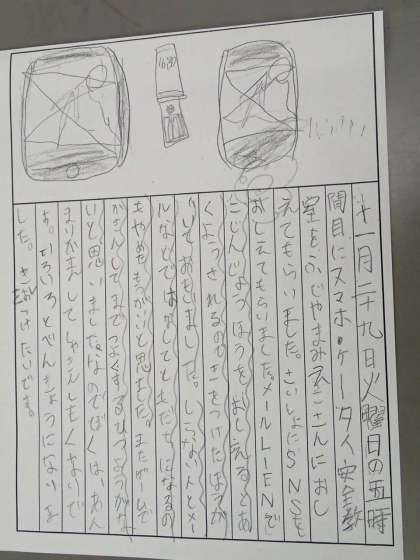 16:30
十一月二十九日火曜日の五時
間目にスマホ・ケータイ安全教
室をふじやまみえこさんにおし
えてもらいました。さいしょにSNSを
おしえてもらいました。メールLIENで
こじんじょうほうをおしえるとあ
くようされるのできをつけたほうが
いいておもいました。しらない人とメー
ルなどではなしてと友だちになるの
もやめたほうがいいと思いました。またゲームで
かきんしてまでつよくするひつようがな
いと思いました。なのでぼくは、あん
まりかまんしてしゃきんもしたくないで
す。いろいろとべんきょうになりま
した。きおつけたいです。